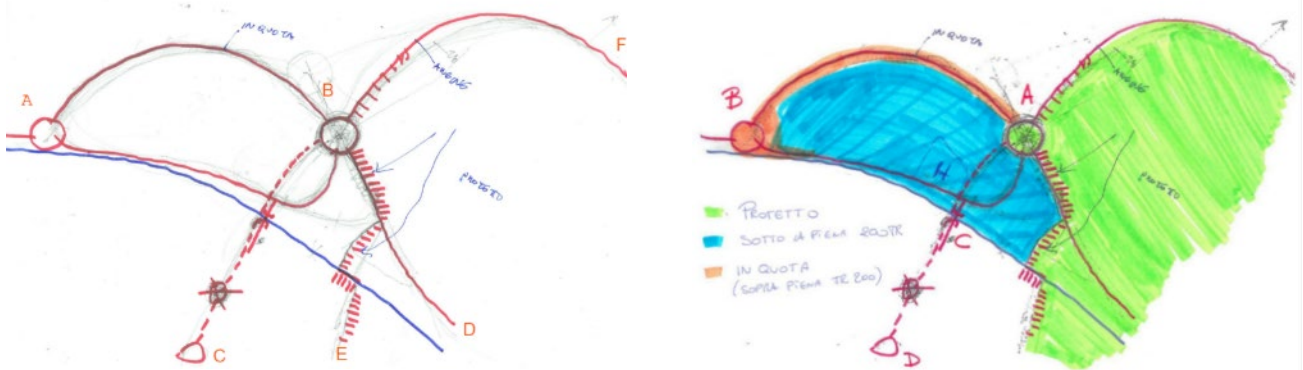 IN QUOTA
F
A
B
ARGINE
PROTETTO
D
C
E
IN QUOTA
B
A
ARGINE
PROTETTO
H
C
PROTETTO
SOTTO A PIENA 200TR
IN QUOTA
(SOPRA PIENA TR 200)
D